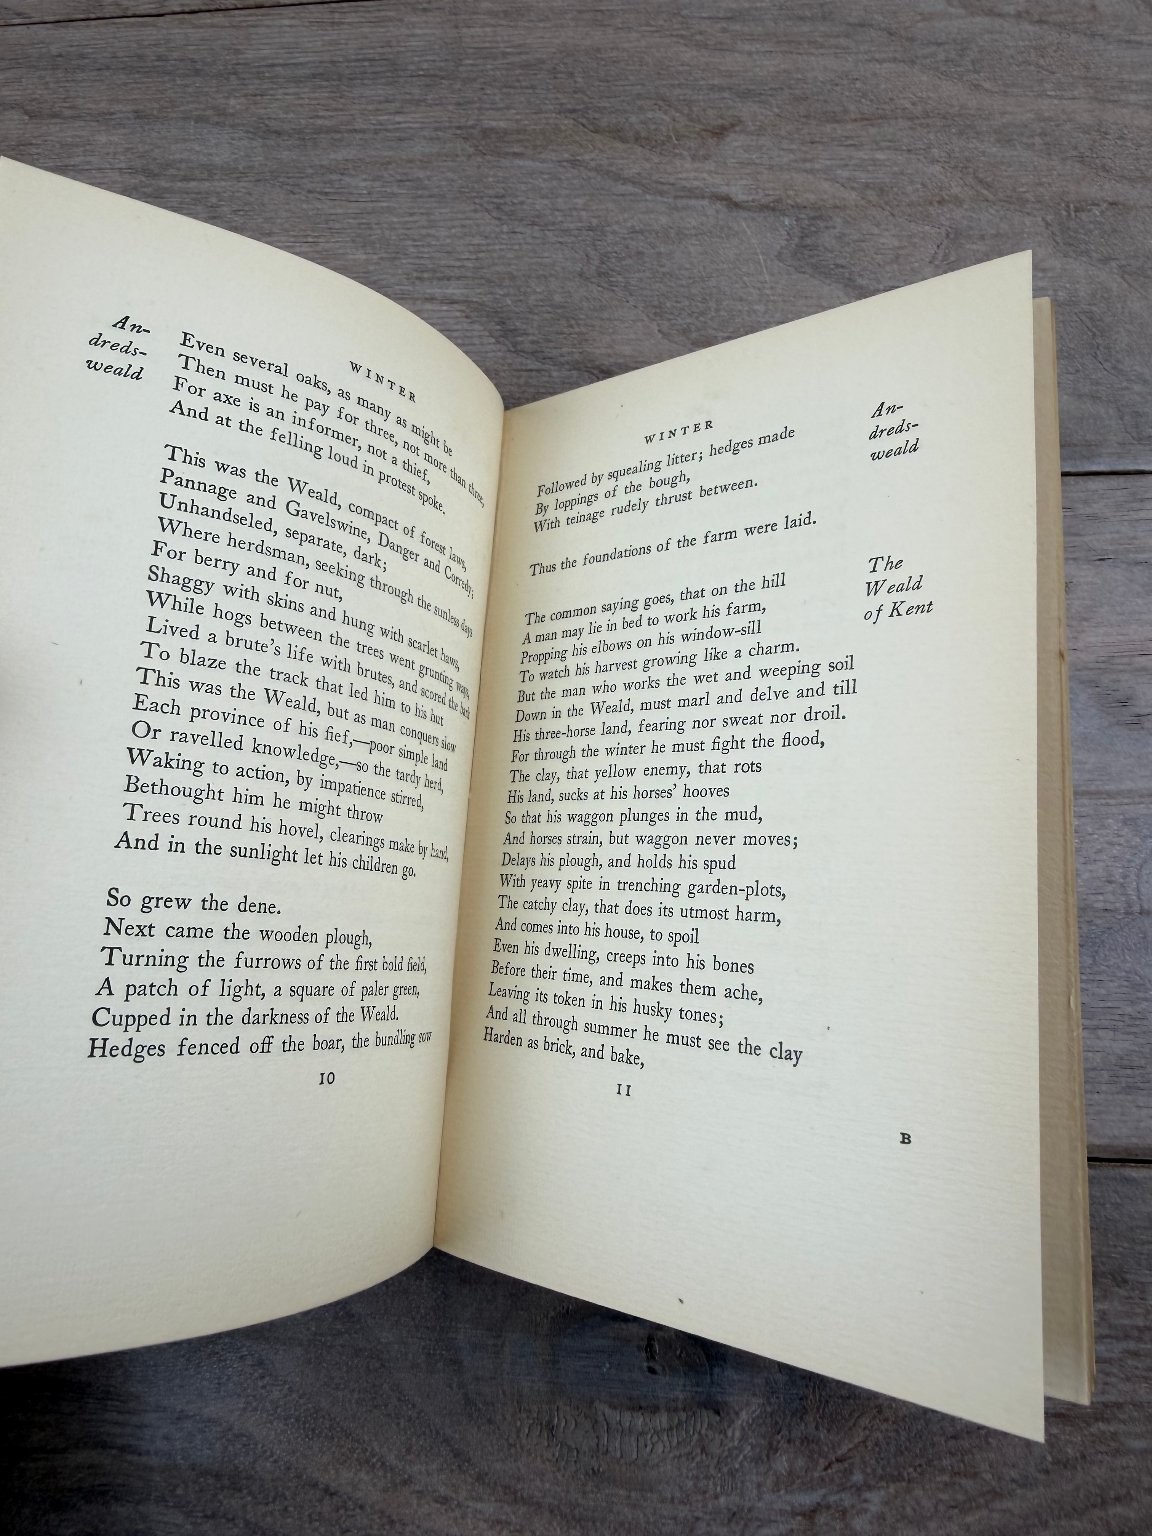 WINTER
An-
dreds-
weald
Even several oaks, as many as might be
Then must he pay for three, not more than three,
For axe is an informer, not a thief,
And at the felling loud in protest spoke.
This was the Weald, compact of forest laws,
Pannage and Gavelswine, Danger and Corredy;
Unhandseled, separate, dark;
Where herdsman, seeking through the sunless days
For berry and for nut,
Shaggy with skins and hung with scarlet haws,
While hogs between the trees went grunting ways,
Lived a brute's life with brutes, and scored the bark
To blaze the track that led him to his hut
This was the Weald, but as man conquers slow
Each province of his fief,—poor simple land
Or ravelled knowledge,—so the tardy herd,
Waking to action, by impatience stirred,
Bethought him he might throw
Trees round his hovel, clearings make by hand,
And in the sunlight let his children go.
So grew the dene.
Next came the wooden plough,
Turning the furrows of the first bold field,
A patch of light, a square of paler green,
Cupped in the darkness of the Weald.
Hedges fenced off the boar, the bundling sow
10
WINTER
An-
dreds-
weald
Followed by squealing litter; hedges made
By loppings of the bough,
With teinage rudely thrust between.
Thus the foundations of the farm were laid.
The
Weald
of Kent
The common saying goes, that on the hill
A man may lie in bed to work his farm,
Propping his elbows on his window-sill
To watch his harvest growing like a charm.
But the man who works the wet and weeping soil
Down in the Weald, must marl and delve and till
His three-horse land, fearing nor sweat nor droil.
For through the winter he must fight the flood,
The clay, that yellow enemy, that rots
His land, sucks at his horses' hooves
So that his waggon plunges in the mud,
And horses strain, but waggon never moves;
Delays his plough, and holds his spud
With yeavy spite in trenching garden-plots,
The catchy clay, that does its utmost harm,
And comes into his house, to spoil
Even his dwelling, creeps into his bones
Before their time, and makes them ache,
Leaving its token in his husky tones;
And all through summer he must see the clay
Harden as brick, and bake,
11
B